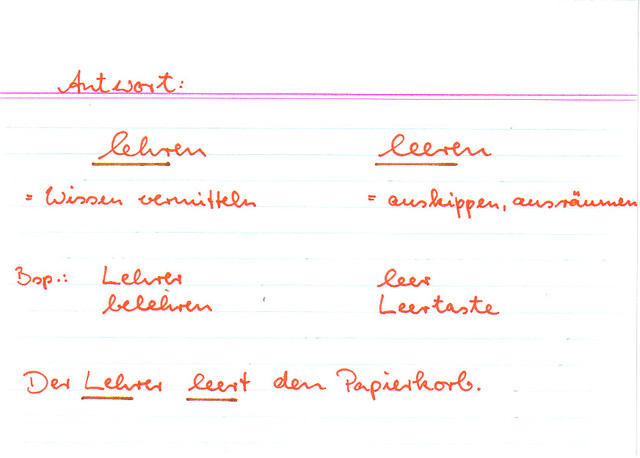 Antwort:
lehren leeren
= Wissen vermitteln = auskippen, ausräumen
Bsp.: Lehrer leer
belehren Leertaste
Der Lehrer leert den Papierkorb.